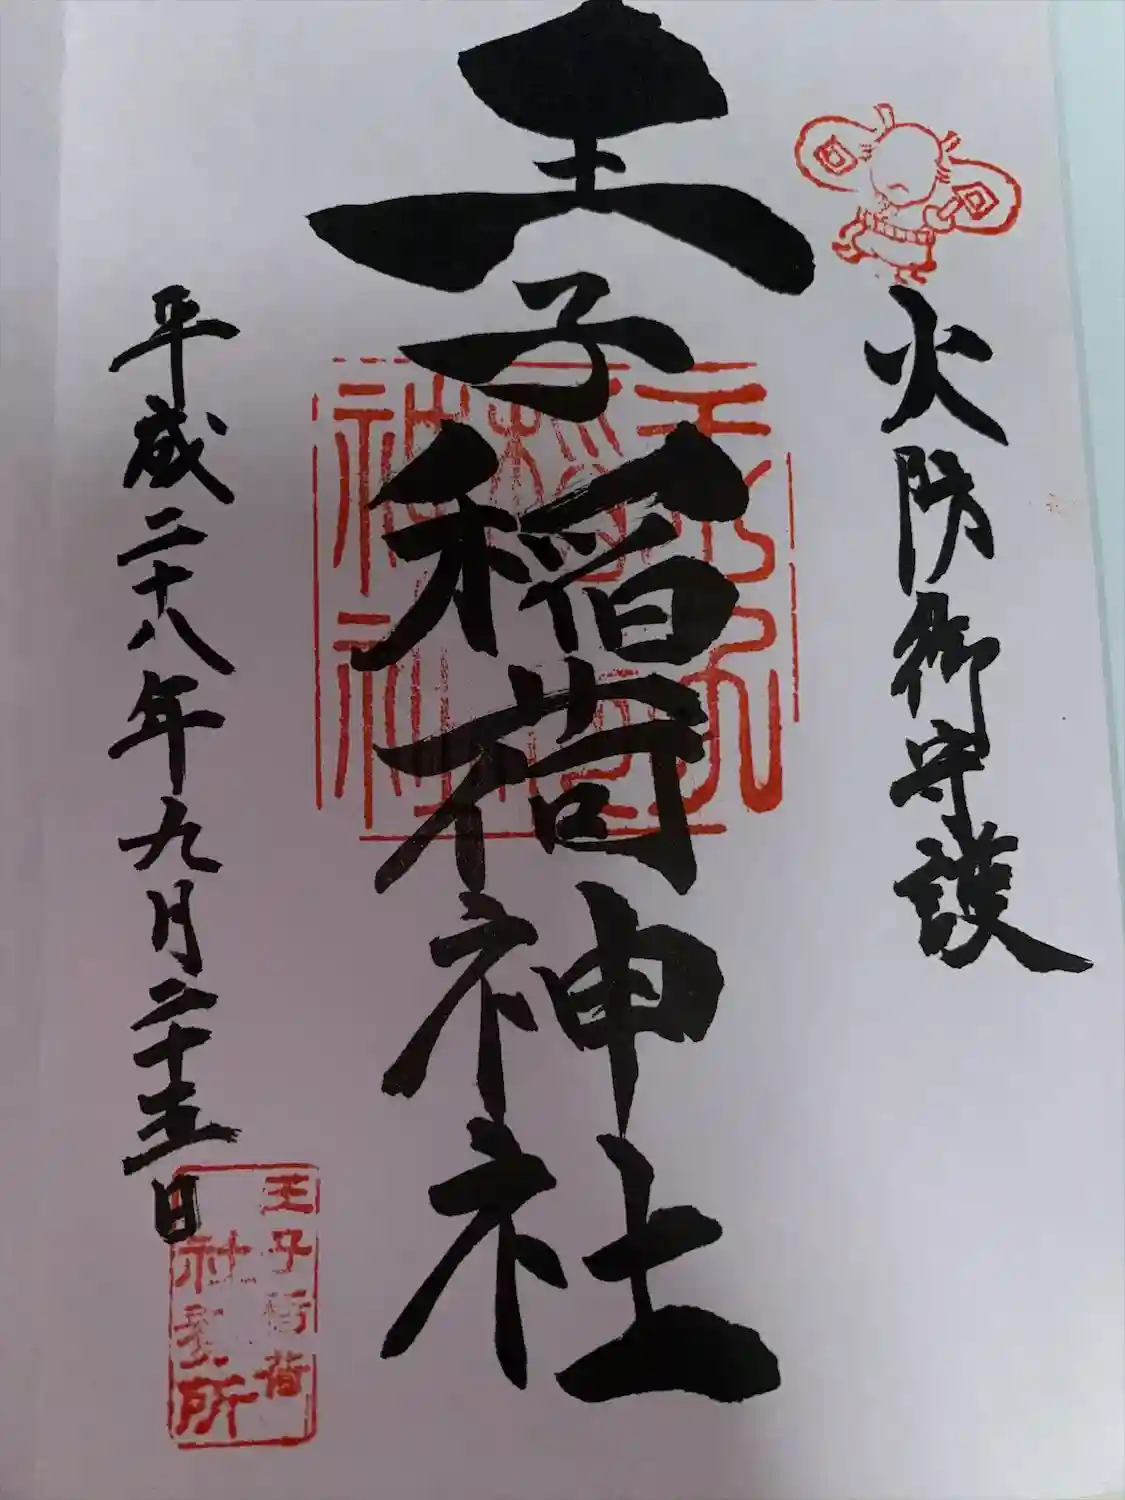 火防御守護
王子稲荷神社
平成二十八年九月二十五日
王子稲荷
神社
王子稲荷
社務所